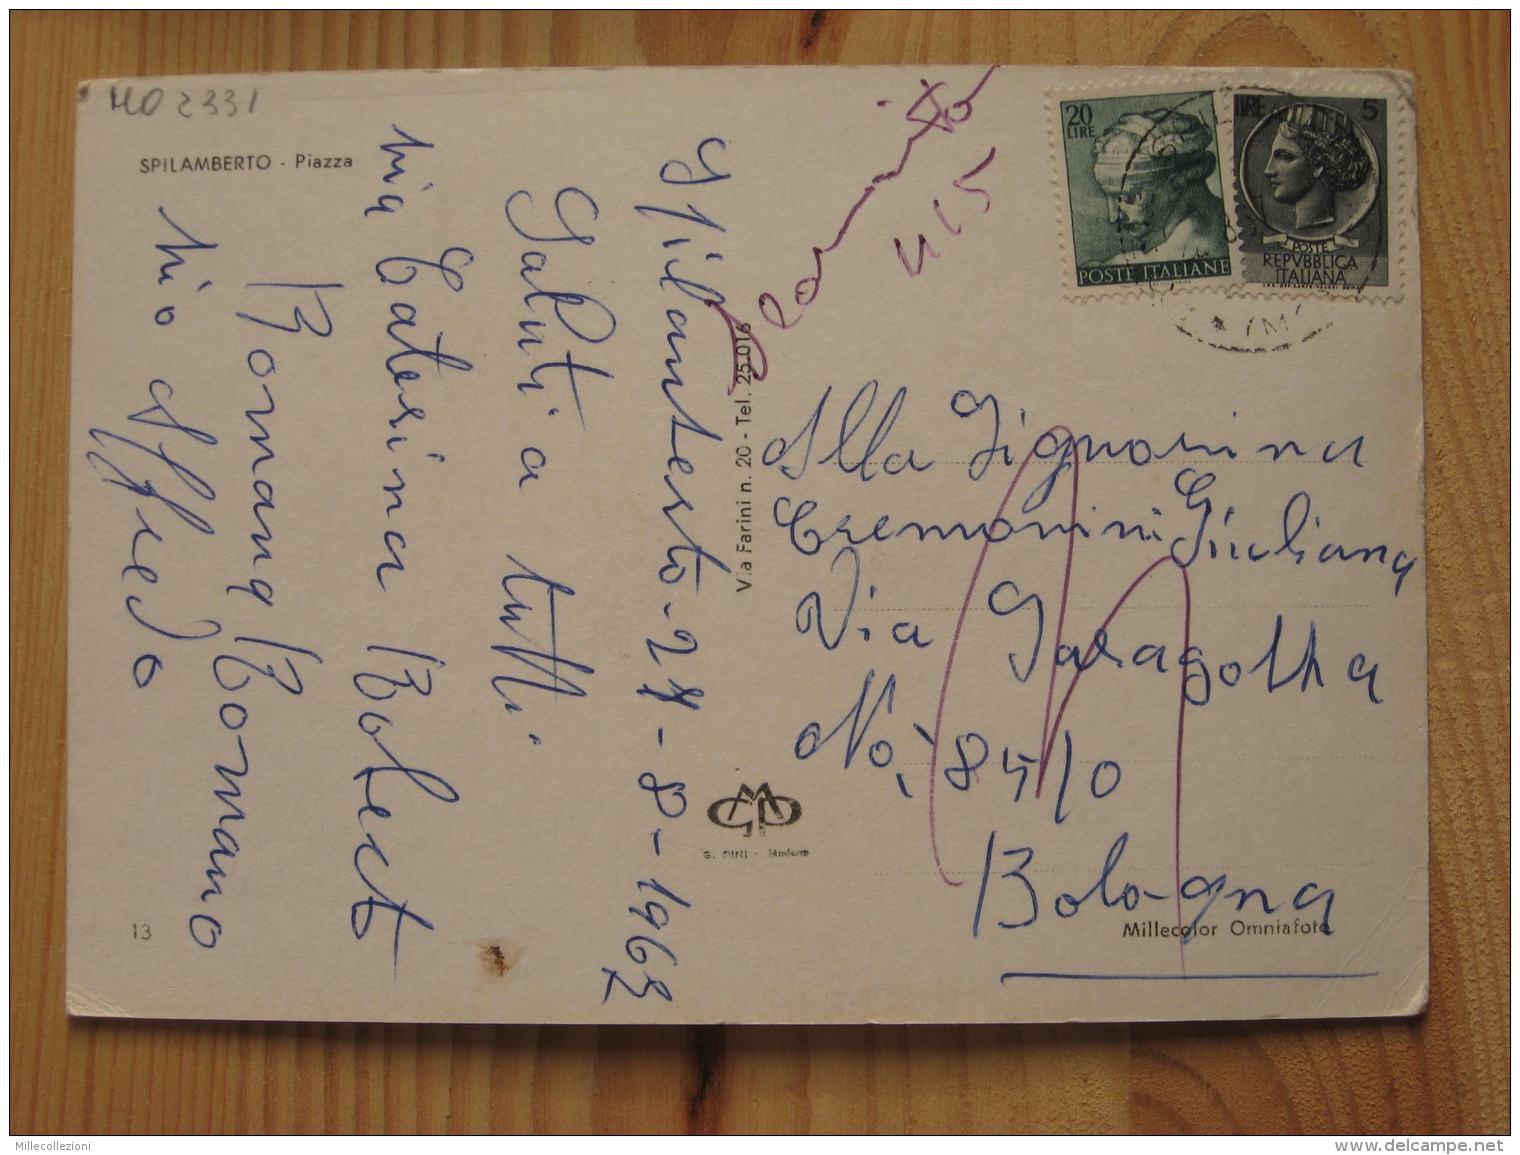 MO 2331
SPILAMBERTO - Piazza
Spilamberto-24-8-1963
Saluti a tutti
Zia Caterina Robert
Romana Romano
Zio Alfredo
Via Farini n. 20 - Tel. 25.016
G. PINI - Modena
13
415
20
LIRE
POSTE ITALIANE
LIRE 5
POSTE
REPVBBLICA
ITALIANA
Alla Signorina
Cremonini Giuliana
Via Saragotha
No, 84/0
Bologna
Millecolor Omnifoto
Millecollezioni
http://www.delcampe.net